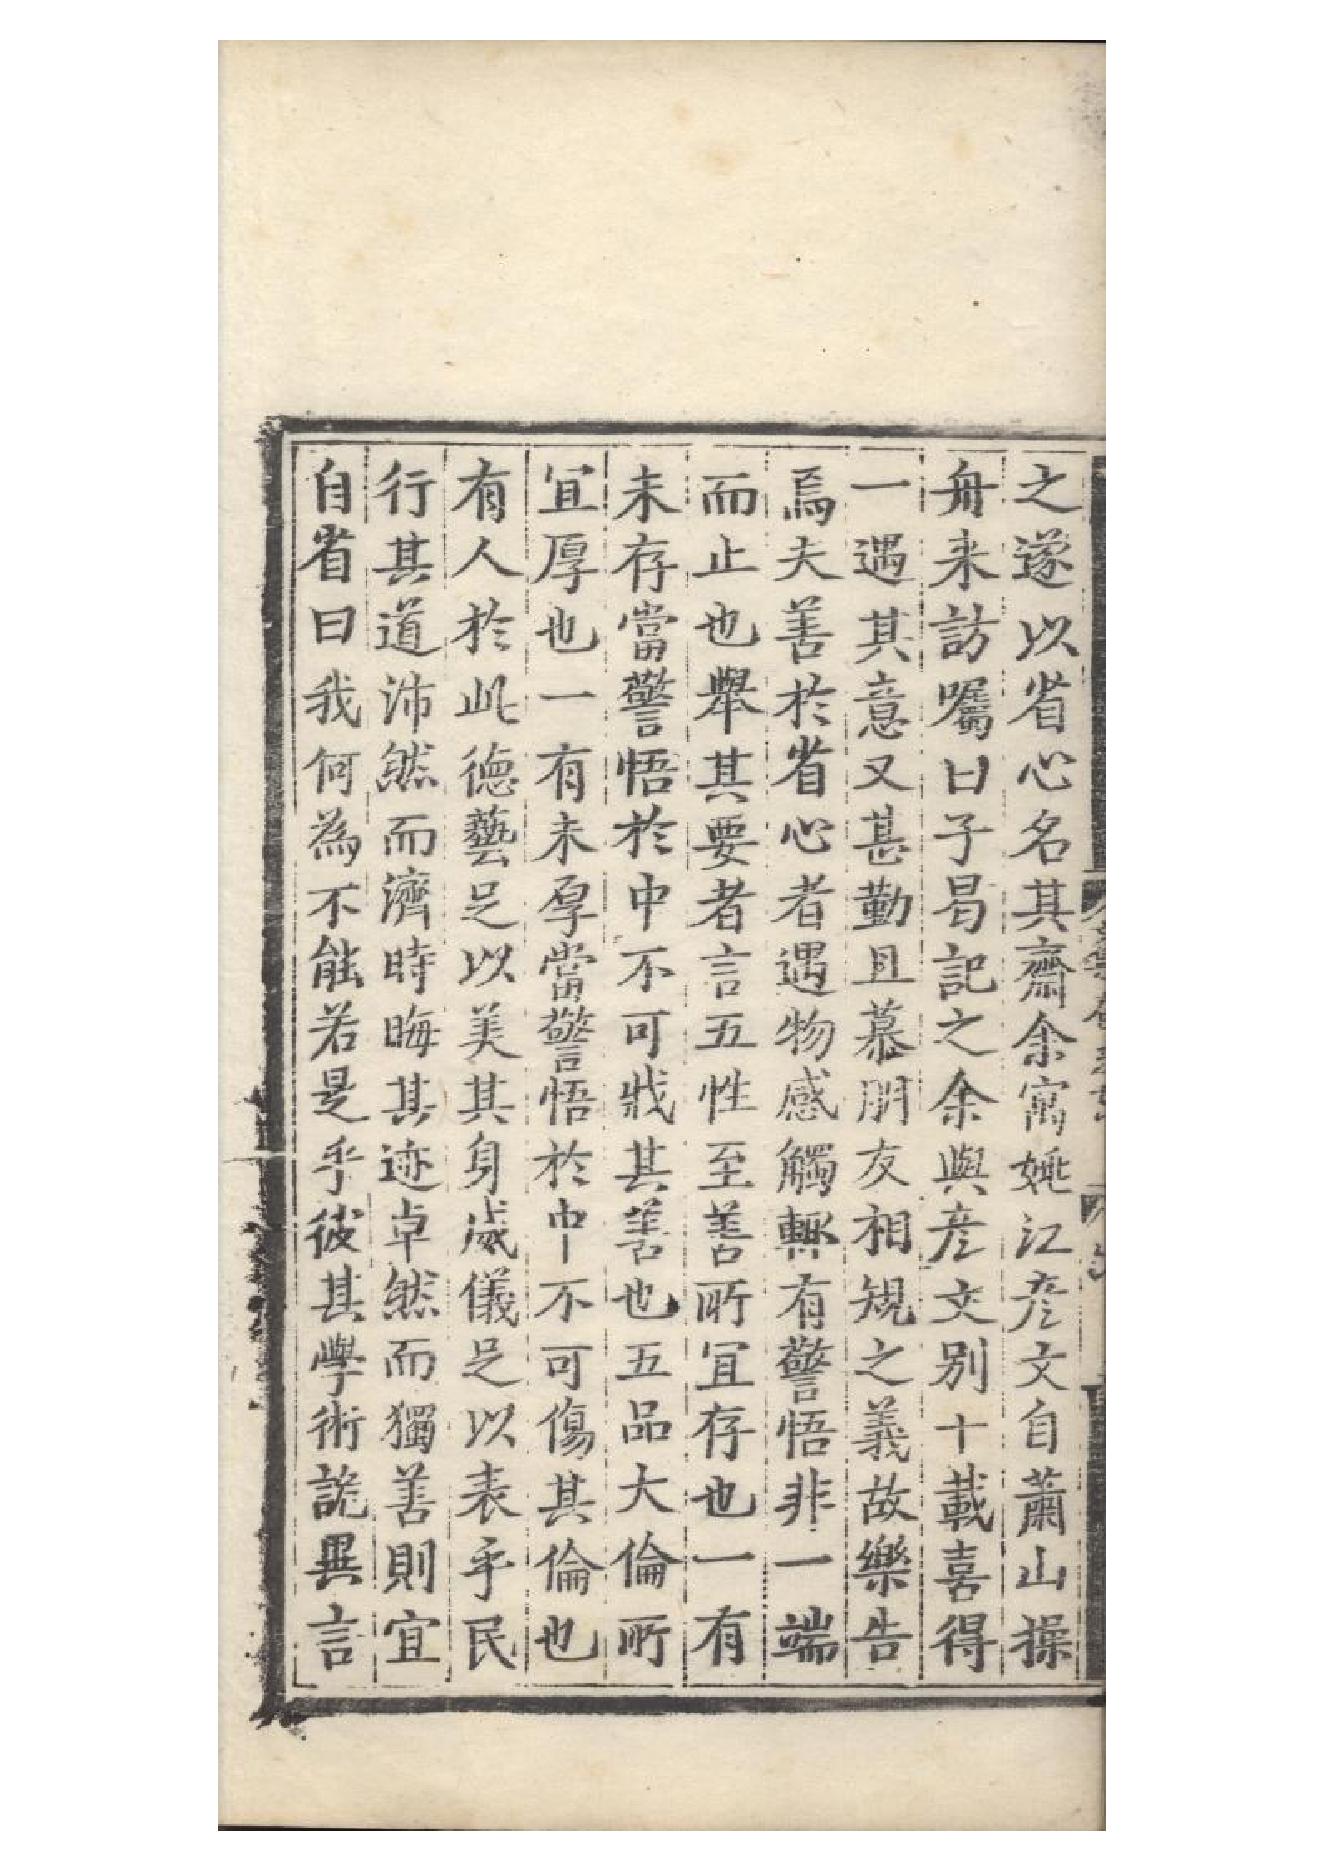 之遂以省心名其齋余寓姚江彦文自蕭山操
舟来訪囑曰子曷記之余與彦文别十載喜得
一遇其意又甚勤且慕朋友相規之義故樂告
焉夫善於省心者遇物感觸輙有警悟非一端
而止也舉其要者言五性至善所宜存也一有
未存當警悟於中不可戕其善也五品大倫所
宜厚也一有未厚當警悟於中不可傷其倫也
有人於此德藝足以美其身威儀足以表乎民
行其道沛然而濟時晦其迹卓然而獨善則宜
自省曰我何為不能若是乎彼其學術詭異言